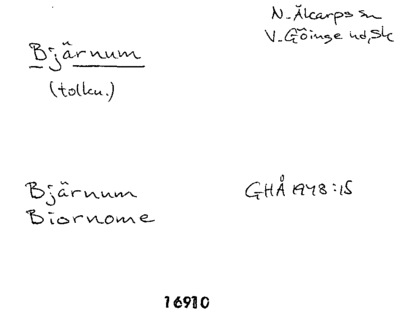 N. Åkarps sn
V. Göinge hd, Sk
Bjärnum
(tolkn.)
Bjärnum
Biornome
GHÅ 1948:15
16910